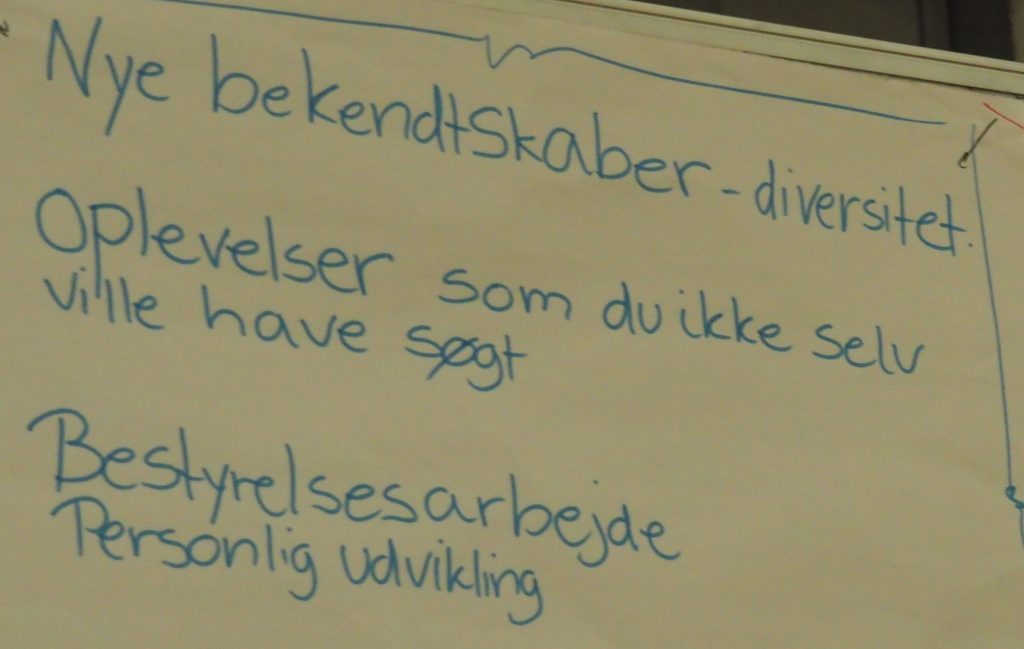 Nye bekendtskaber - diversitet.
Oplevelser som du ikke selv
ville have søgt
Bestyrelsesarbejde
Personlig udvikling